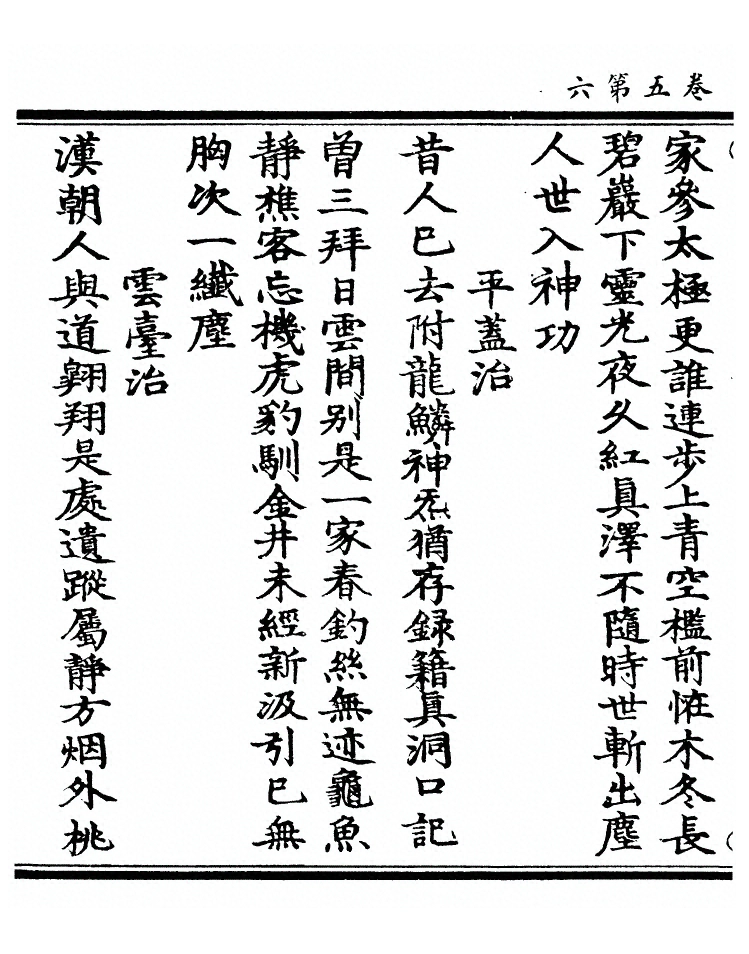 卷五第六
家參太極更誰連步上青空檻前恠木冬長
碧巖下靈光夜夂紅眞澤不隨時世斬出塵
人世入神功
平蓋治
昔人巳去附龍鱗神炁猶存録籍眞洞口記
曽三拜日雲間别是一家春釣絲無迹龜魚
靜樵客忘機虎豹馴金井未經新汲引巳無
胸次一纖塵
雲臺治
漢朝人與道翺翔是處遺蹤屬靜方烟外桃